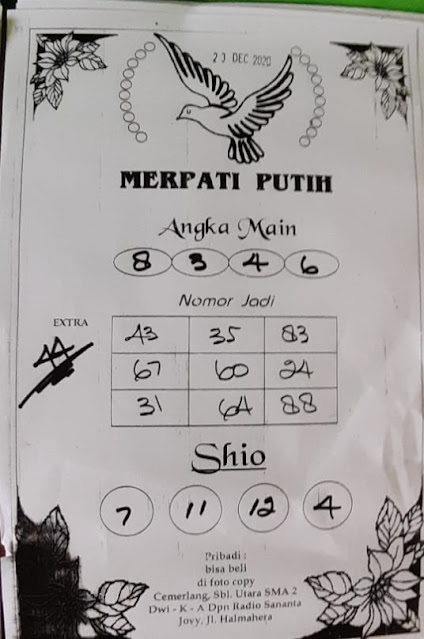 23 DEC 2020
MERPATI PUTIH
Angka Main
8 3 4 6
Nomor Jadi
EXTRA
44
43 35 83
67 60 24
31 64 88
Shio
7 11 12 4
Pribadi :
bisa beli
di foto copy
Cemerlang, Sbl. Utara SMA 2
Dwi - K - A Dpn Radio Sananta
Jovy, Jl. Halmahera